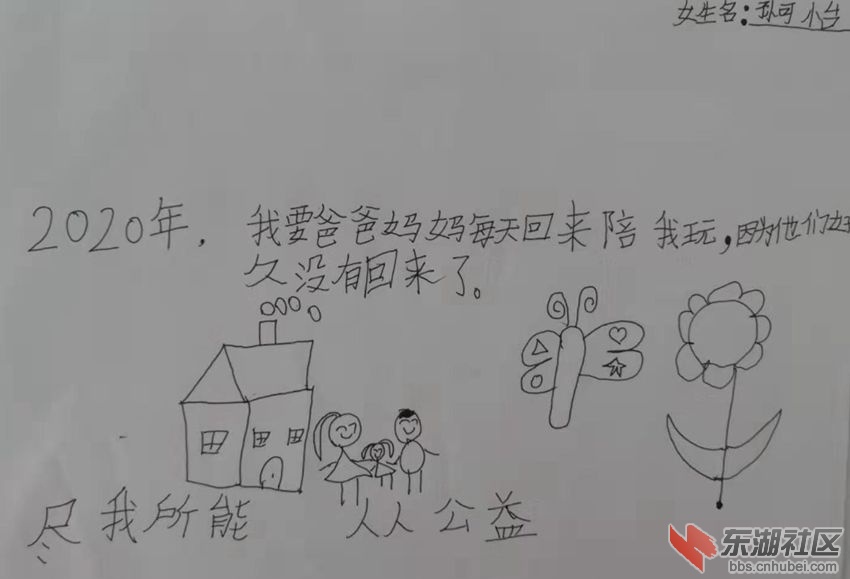 女生名：孙可 小台
2020年，我要爸爸妈妈每天回来陪我玩，因为他们好
久没有回来了。
尽我所能 人人公益
东湖社区
bbs.cnhubei.com